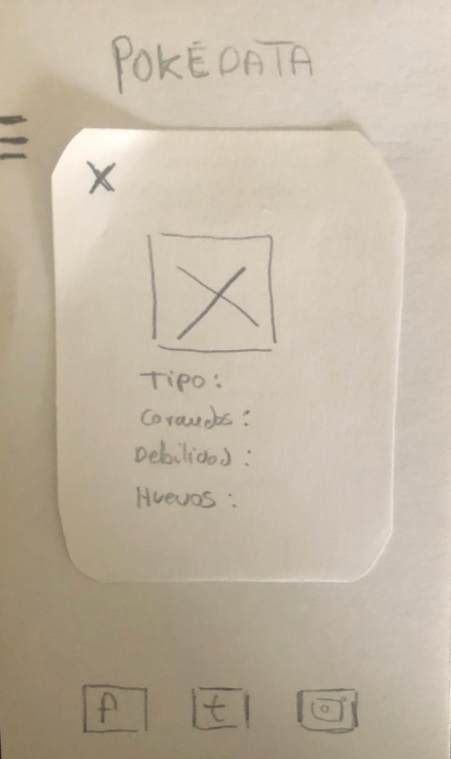 POKÉDATA
X
Tipo:
Caramelos:
Debilidad:
Huevos:
f t